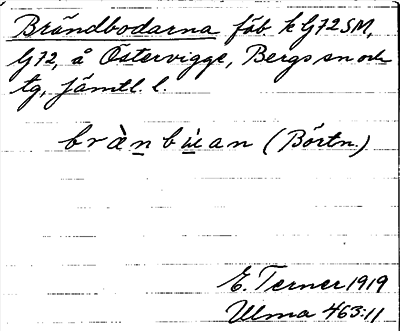 Brändbodarna fäb k G72SM,
G72, å Östervigge, Bergs sn och
tg, Jämtl. l.
bràn bùan (Börtn.)
E. Terner 1919
Ulma 463:11